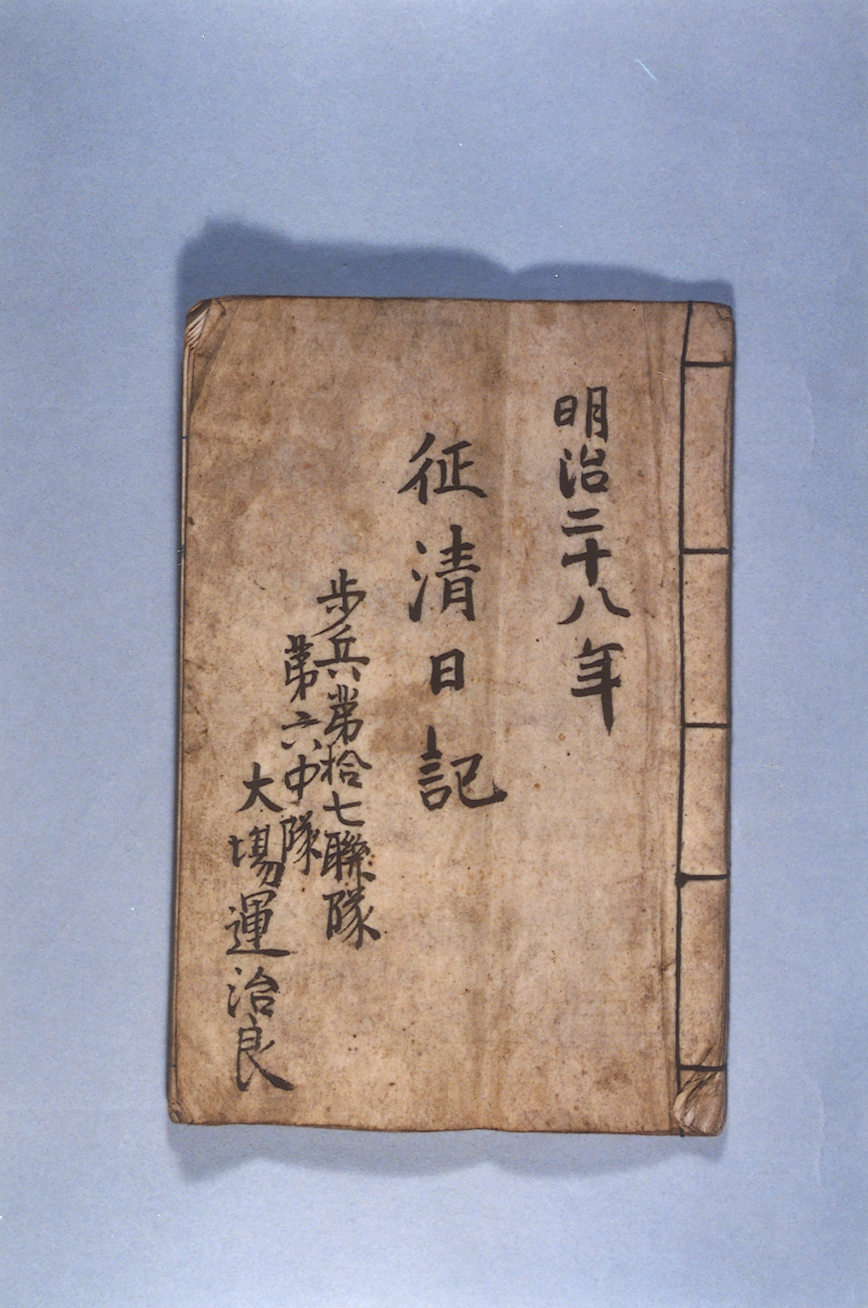 明治二十八年
征清日記
歩兵第拾七聯隊
第六中隊
大場運治良